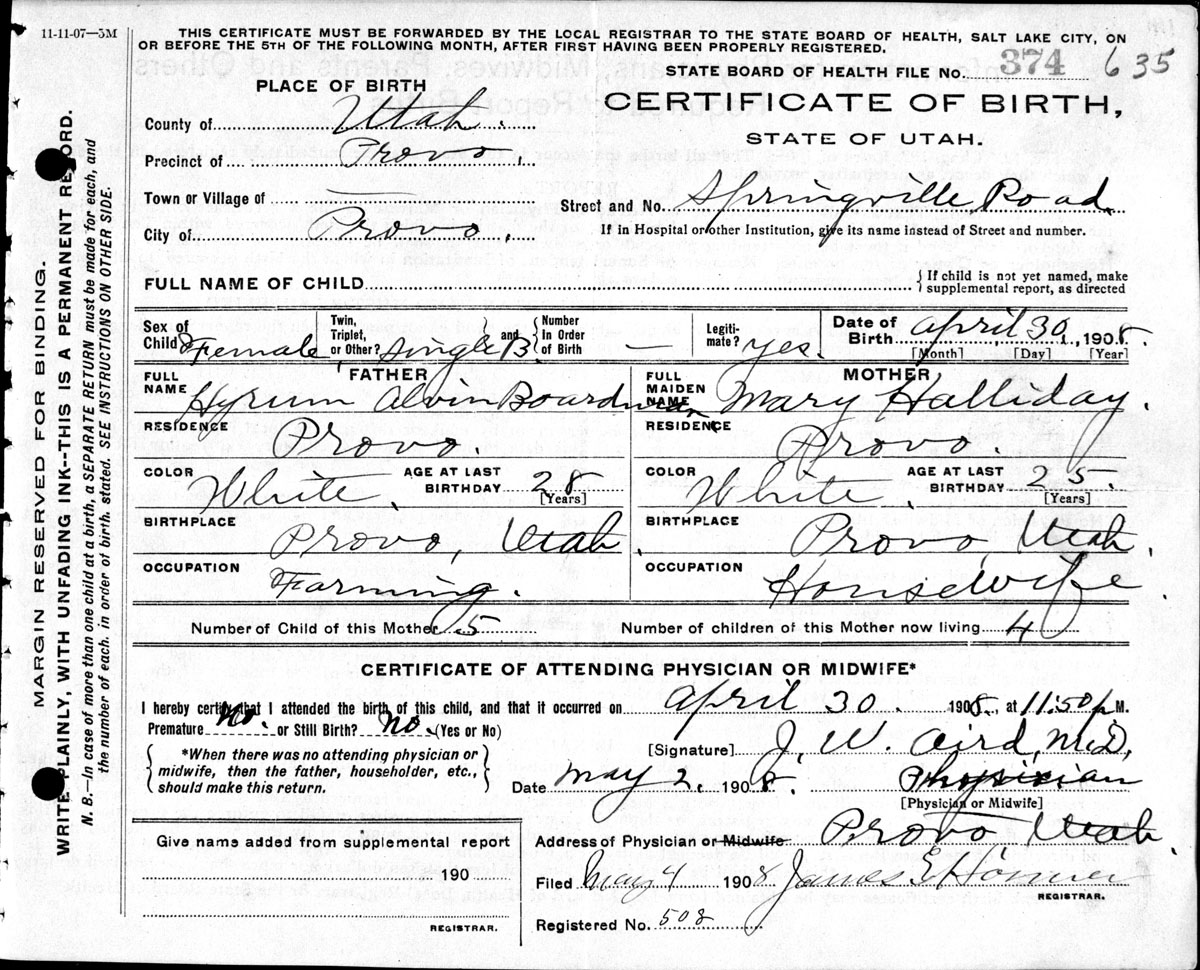 11-11-07—3M
THIS CERTIFICATE MUST BE FORWARDED BY THE LOCAL REGISTRAR TO THE STATE BOARD OF HEALTH, SALT LAKE CITY, ON
OR BEFORE THE 5TH OF THE FOLLOWING MONTH, AFTER FIRST HAVING BEEN PROPERLY REGISTERED.
STATE BOARD OF HEALTH FILE No. 374 635
PLACE OF BIRTH
CERTIFICATE OF BIRTH,
STATE OF UTAH.
County of Utah.
Precinct of Provo.
Town or Village of —
Street and No. Springville Road.
City of Provo.
If in Hospital or other Institution, give its name instead of Street and number.
FULL NAME OF CHILD
{ If child is not yet named, make
supplemental report, as directed
Sex of Child Female
Twin, Triplet, or Other? Single B. } and { Number In Order of Birth —
Legitimate? yes.
Date of Birth April 30, 1908.
[Month] [Day] [Year]
FATHER
FULL NAME Hyrum Alvin Boardman
RESIDENCE Provo.
COLOR White. AGE AT LAST BIRTHDAY 28
[Years]
BIRTHPLACE Provo, Utah.
OCCUPATION Farming.
MOTHER
FULL MAIDEN NAME Mary Halliday.
RESIDENCE Provo.
COLOR White. AGE AT LAST BIRTHDAY 25.
[Years]
BIRTHPLACE Provo, Utah.
OCCUPATION Housewife
Number of Child of this Mother 5 Number of children of this Mother now living 4
CERTIFICATE OF ATTENDING PHYSICIAN OR MIDWIFE*
I hereby certify that I attended the birth of this child, and that it occurred on April 30. 1908, at 11:50 p M.
Premature no. or Still Birth? no. (Yes or No)
*When there was no attending physician or
midwife, then the father, householder, etc.,
should make this return.
[Signature] J. W. Aird, M.D.
Date May 2. 1908. Physician
[Physician or Midwife]
Address of Physician or Midwife Provo Utah.
Filed May 4 1908 James E Homer
REGISTRAR.
Registered No. 508
Give name added from supplemental report
190
REGISTRAR.
MARGIN RESERVED FOR BINDING.
WRITE PLAINLY, WITH UNFADING INK--THIS IS A PERMANENT RECORD.
N. B.—In case of more than one child at a birth, a SEPARATE RETURN must be made for each, and
the number of each, in order of birth, stated. SEE INSTRUCTIONS ON OTHER SIDE.